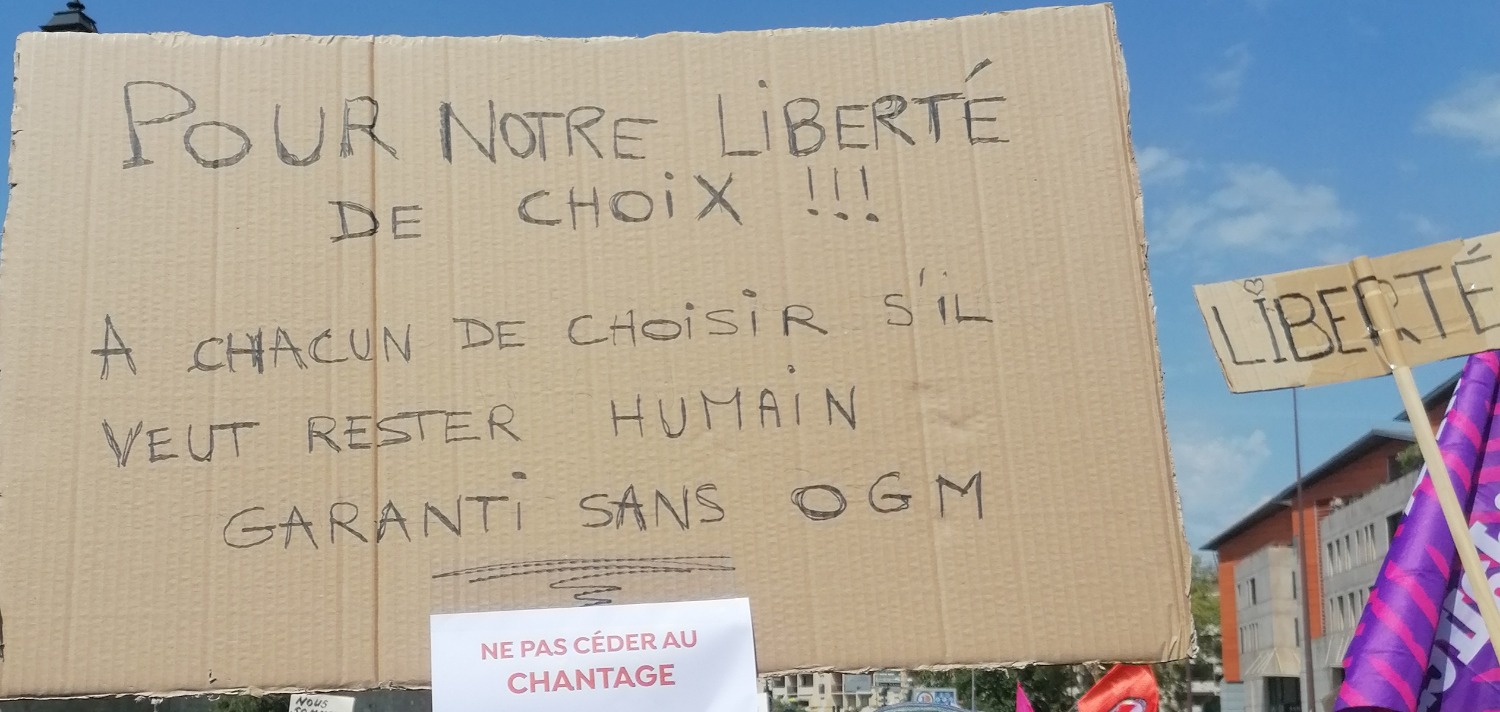 POUR NOTRE LiBERTÉ
DE CHOiX !!!
A CHACUN DE CHOiSiR S'iL
VEUT RESTER HUMAiN
GARANTi SANS OGM
NE PAS CÉDER AU
CHANTAGE
LiBERTÉ
NOUS